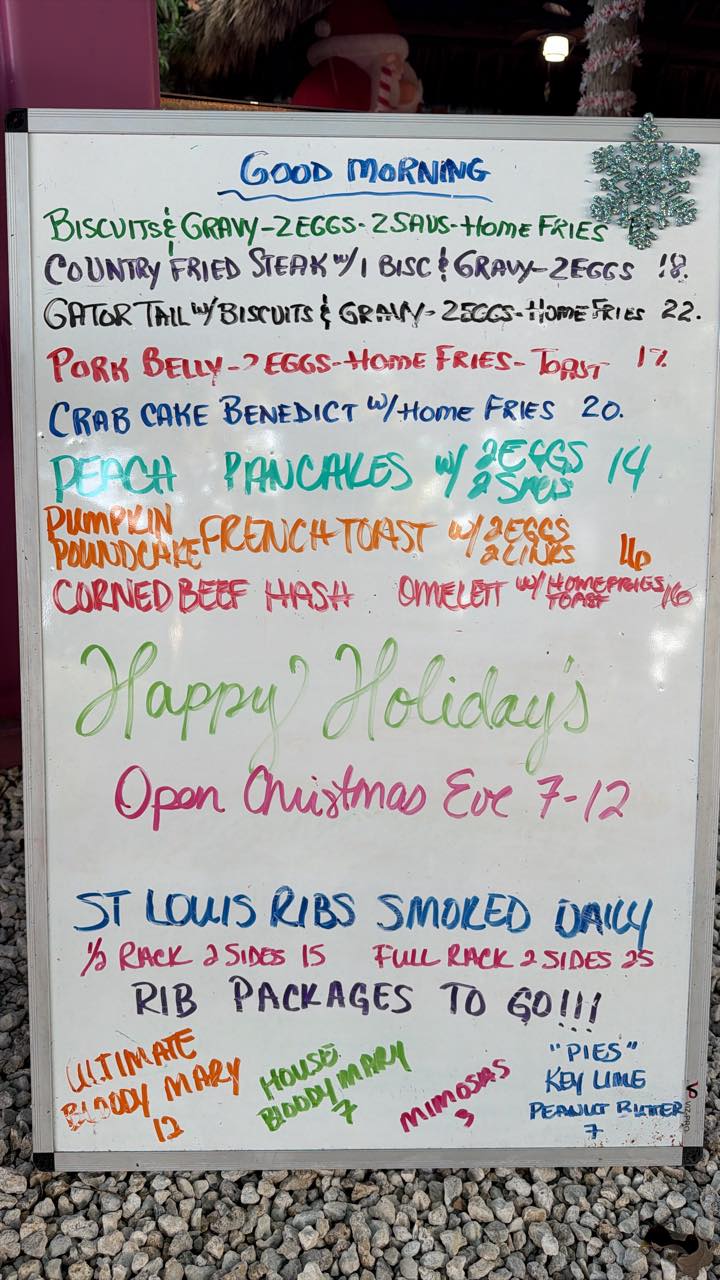 GOOD MORNING
BISCUITS & GRAVY-2 EGGS-2 SAUS-HOME FRIES
COUNTRY FRIED STEAK W/ 1 BISC & GRAVY-2 EGGS 18.
GATOR TAIL W/ BISCUITS & GRAVY-2 EGGS-HOME FRIES 22.
PORK BELLY-2 EGGS-HOME FRIES-TOAST 17.
CRAB CAKE BENEDICT W/ HOME FRIES 20.
PEACH PANCAKES W/ 2 EGGS 2 SAUS 14
PUMPKIN POUNDCAKE FRENCH TOAST W/ 2 EGGS 2 LINKS 16
CORNED BEEF HASH OMELETT W/ HOMEFRIES TOAST 16
Happy Holiday's
Open Christmas Eve 7-12
ST LOUIS RIBS SMOKED DAILY
1/2 RACK 2 SIDES 15 FULL RACK 2 SIDES 25
RIB PACKAGES TO GO!!!
ULTIMATE BLOODY MARY 12
HOUSE BLOODY MARY 7
MIMOSAS 3
"PIES"
KEY LIME
PEANUT BUTTER
7